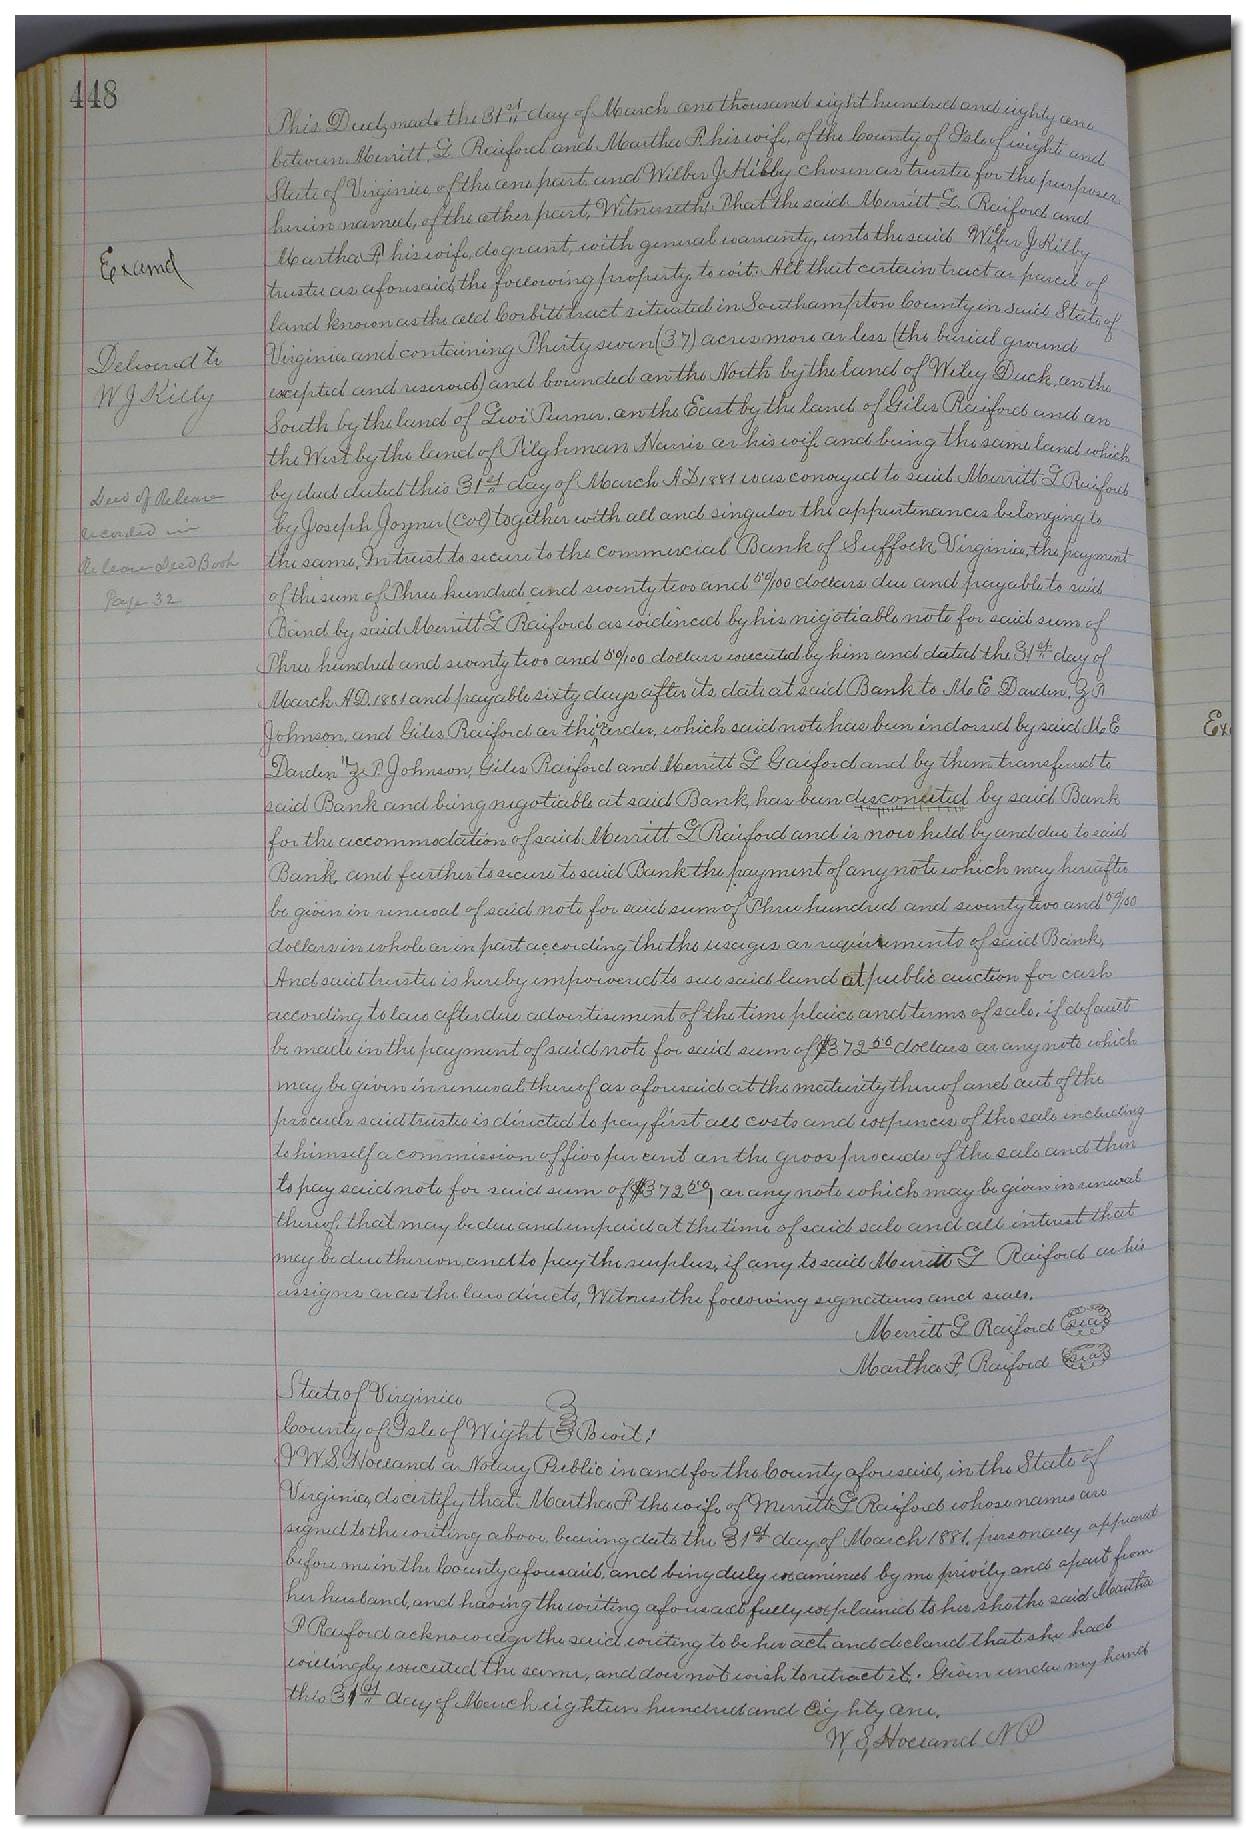 448
This Deed, made the 31st day of March one thousand eight hundred and eighty one
between Merritt G Raiford and Martha F. his wife, of the County of Isle of wight and
State of Virginia, of the one part and Wilber J. Kilby chosen as trustee for the purposes
herein named, of the other part, Witnesseth: That the said Merritt G. Raiford and
Martha F. his wife, do grant, with general warranty, unto the said Wilber J Kilby
trustee as aforesaid, the following property, to wit: All that certain tract or parcel of
land known as the old Corbitt tract situated in Southampton County in said State of
Virginia and containing Thirty seven (37) acres more or less (the burial ground
excepted and reserved) and bounded on the North by the land of Wiley Duck, on the
South by the land of Levi Turner, on the East by the land of Giles Raiford and on
the West by the land of Tilghman Harris or his wife and being the same land which
by deed dated this 31st day of March A.D. 1881 was conveyed to said Merritt G Raiford
by Joseph Joyner (Col) together with all and singular the appurtenances belonging to
the same, In trust to secure to the commercial Bank of Suffock Virginia, the payment
of the sum of Three hundred and seventy two and 50/100 dollars due and payable to said
Band by said Merritt G Raiford as evidenced by his negotiable note for said sum of
Three hundred and seventy two and 50/100 dollars executed by him and dated the 31st day of
March A.D. 1881 and payable sixty days after its date at said Bank to M. E. Darden, Z. T.
Johnson, and Giles Raiford or their order, which said note has been indorsed by said M. E
Darden Z. T. Johnson, Giles Raiford and Merritt G Gaiford and by them transfered to
said Bank and being negotiable at said Bank, has been disconeited by said Bank
for the accommodation of said Merritt G Raiford and is now held by and due to said
Bank, and further to secure to said Bank the payment of any note which may hereafter
be given in renewal of said note for said sum of Three hundred and seventy two and 50/100
dollars in whole or in part according the the usages or requirements of said Bank,
And said trustee is hereby impowered to sell said land at public auction for cash
according to law after due advertisement of the time plaice and terms of sale, if default
be made in the payment of said note for said sum of $372 50 dollars or any note which
may be given in renewal thereof as aforesaid at the maturity thereof and out of the
proceeds said trustee is directed to pay, first all costs and expences of the sale including
to himself a commission of five per cent on the gross proceeds of the sale and then
to pay said note for said sum of $372 50, or any note which may be given in renewal
thereof, that may be due and unpaid at the time of said sale and all interest that
may be due thereon and to pay the surplus, if any to said Merritt G Raiford or his
assigns or as the law directs, Witness the following signatures and seals.
Merritt G Raiford Seal
Martha F. Raiford Seal
State of Virginia
County of Isle of Wight To wit:
I W. S. Holland a Notary Public in and for the County aforesaid, in the State of
Virginia, do certify that Martha F the wife of Merritt G Raiford whose names are
signed to the writing above, bearing date the 31st day of March 1881, personally appeared
before me in the County aforesaid, and being duly examined by me privily and apart from
her husband, and having the writing aforesaid fully explained to her, she the said Martha
F Raiford acknowledge the said writing to be her act, and declared that she had
willingly executed the same, and does not wish to retract it. Given under my hand
this 31st day of March eighteen hundred and Eighty one.
W. S. Holland N P
Examd
Delivered to
W J Kilby
Deed of Release
recorded in
Release Deed Book
Page 32